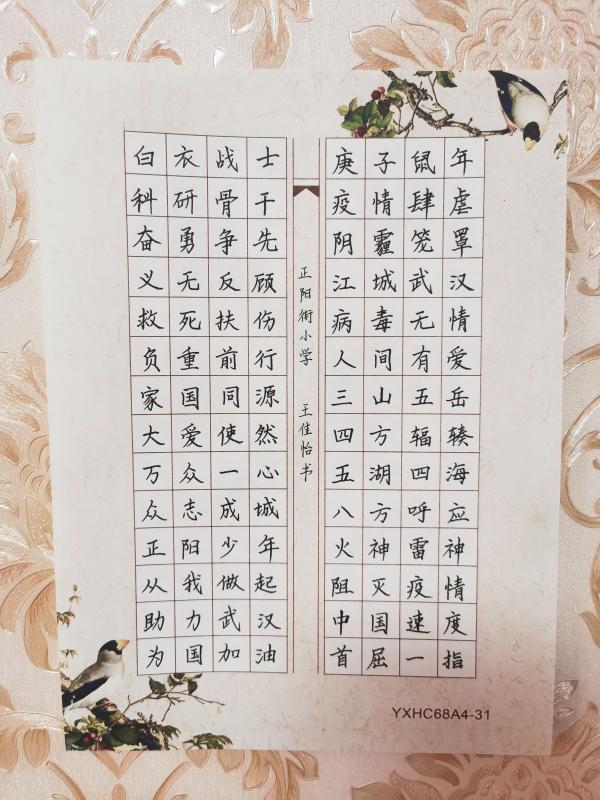 庚子鼠年
疫情肆虐
阴霾笼罩
江城武汉
病毒无情
人间有爱
三山五岳
四方辐辏
五湖四海
八方呼应
火神雷神
阻灭疫情
中国速度
首屈一指
白衣战士
科研骨干
奋勇争先
义无反顾
救死扶伤
负重前行
家国同源
大爱使然
万众一心
众志成城
正阳少年
从我做起
助力武汉
为国加油
正阳街小学 王佳怡书
YXHC68A4-31